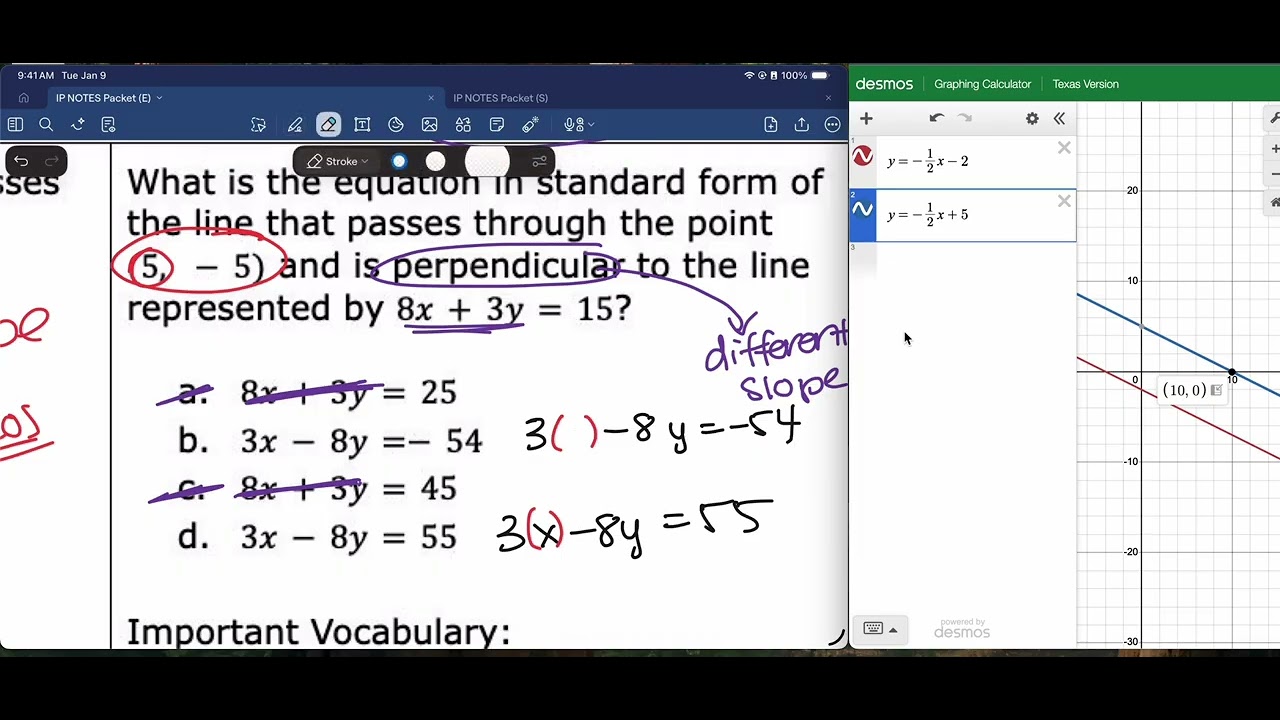 9:41 AM Tue Jan 9
100%
IP NOTES Packet (E)
IP NOTES Packet (S)
Stroke
What is the equation in standard form of
the line that passes through the point
(5, − 5) and is perpendicular to the line
represented by 8x + 3y = 15?
different
slope
a. 8x + 3y = 25
b. 3x − 8y =− 54
3( ) −8y = −54
c. 8x + 3y = 45
d. 3x − 8y = 55
3(x) −8y = 55
Important Vocabulary:
sses
pe
os
desmos
Graphing Calculator
Texas Version
1
y = −1/2x − 2
2
y = −1/2x + 5
3
powered by
desmos
20
10
0
10
(10, 0)
-10
-20
-30